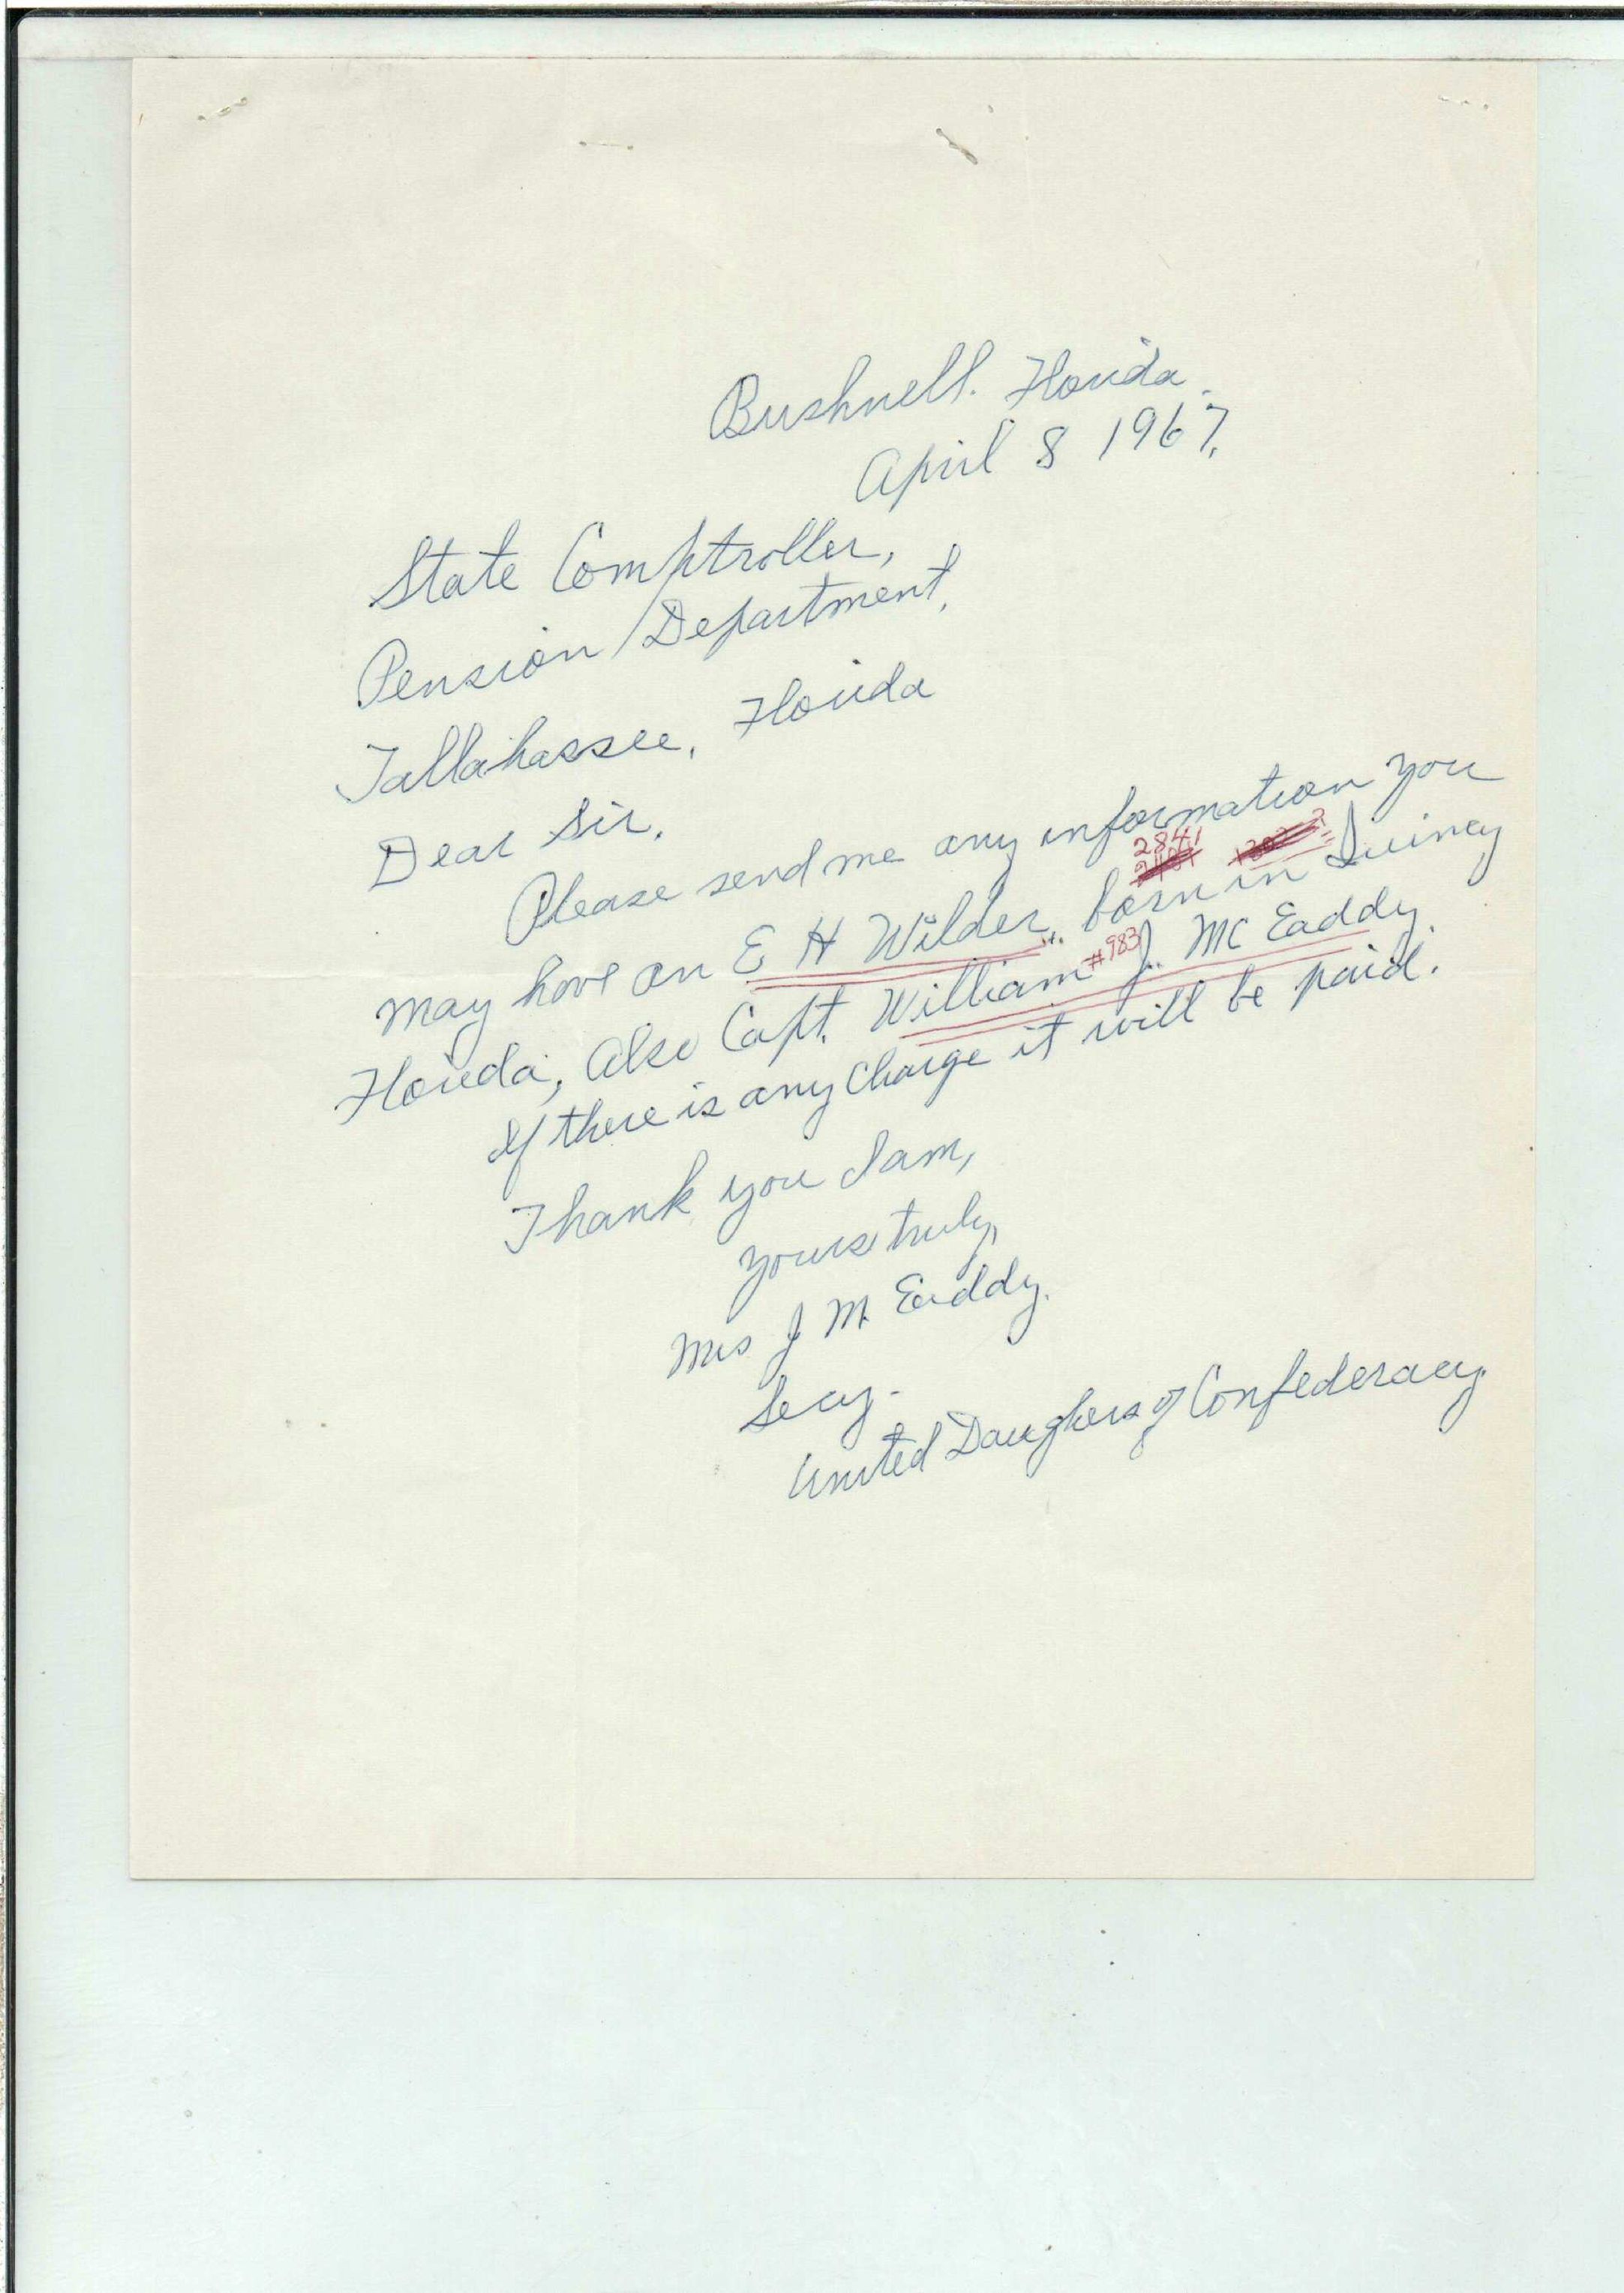 Bushnell. Florida.
April 8 1967.
State Comptroller,
Pension Department,
Tallahassee, Florida
Dear Sir,
Please send me any information you
2841
may have on E H Wilder, born in Quincy
#983
Florida, Also Capt. William J. Mc Eaddy.
If there is any charge it will be paid.
Thank you I am,
yours truly,
Mrs J M. Eaddy.
Secy.
United Daughers of Confederacy.